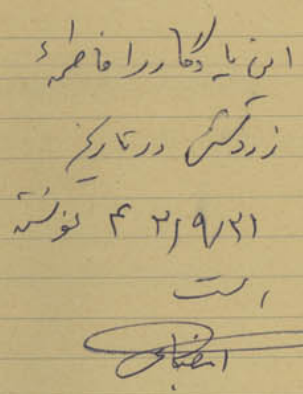 این یادگار را فاطمهء
زردکش در تاریخ
۳۱/۹/۲ م نوشته
است
امضاء